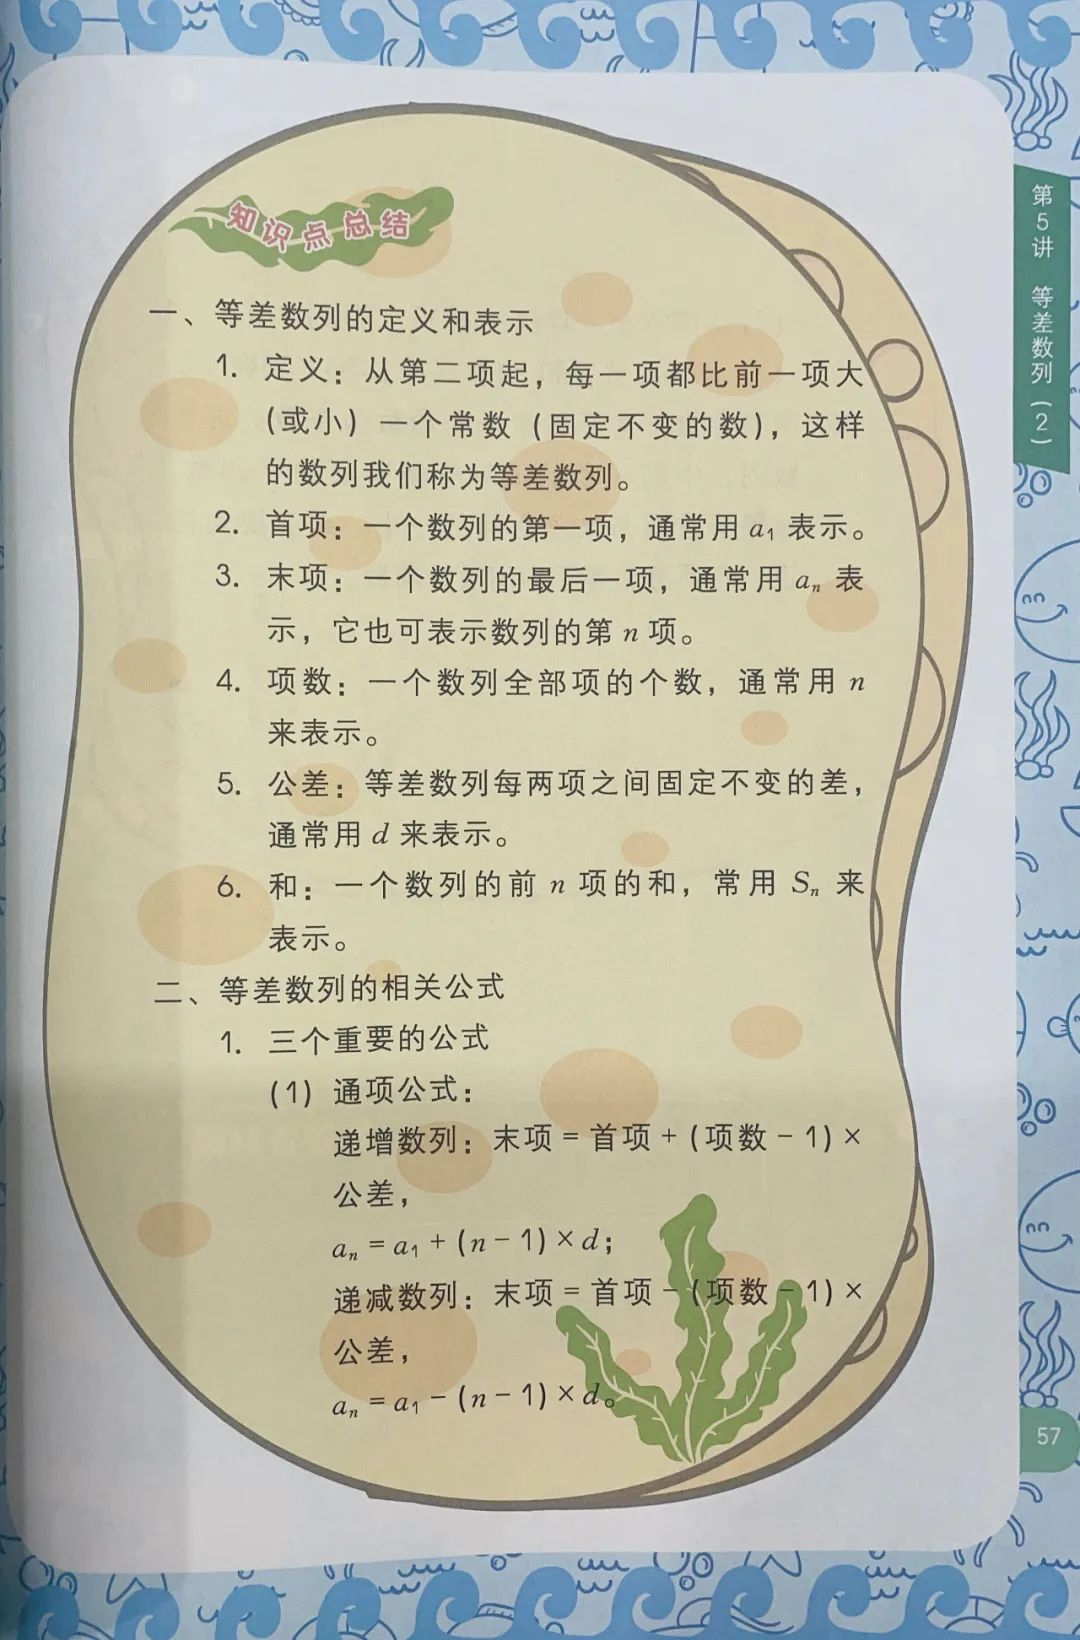 知识点总结
一、等差数列的定义和表示
1. 定义：从第二项起，每一项都比前一项大
（或小）一个常数（固定不变的数），这样
的数列我们称为等差数列。
2. 首项：一个数列的第一项，通常用 a₁ 表示。
3. 末项：一个数列的最后一项，通常用 aₙ 表
示，它也可表示数列的第 n 项。
4. 项数：一个数列全部项的个数，通常用 n
来表示。
5. 公差：等差数列每两项之间固定不变的差，
通常用 d 来表示。
6. 和：一个数列的前 n 项的和，常用 Sₙ 来
表示。
二、等差数列的相关公式
1. 三个重要的公式
（1）通项公式：
递增数列：末项 = 首项 + (项数 - 1) ×
公差，
aₙ = a₁ + (n - 1) × d；
递减数列：末项 = 首项 - (项数 - 1) ×
公差，
aₙ = a₁ - (n - 1) × d。
第5讲 等差数列（2）
57